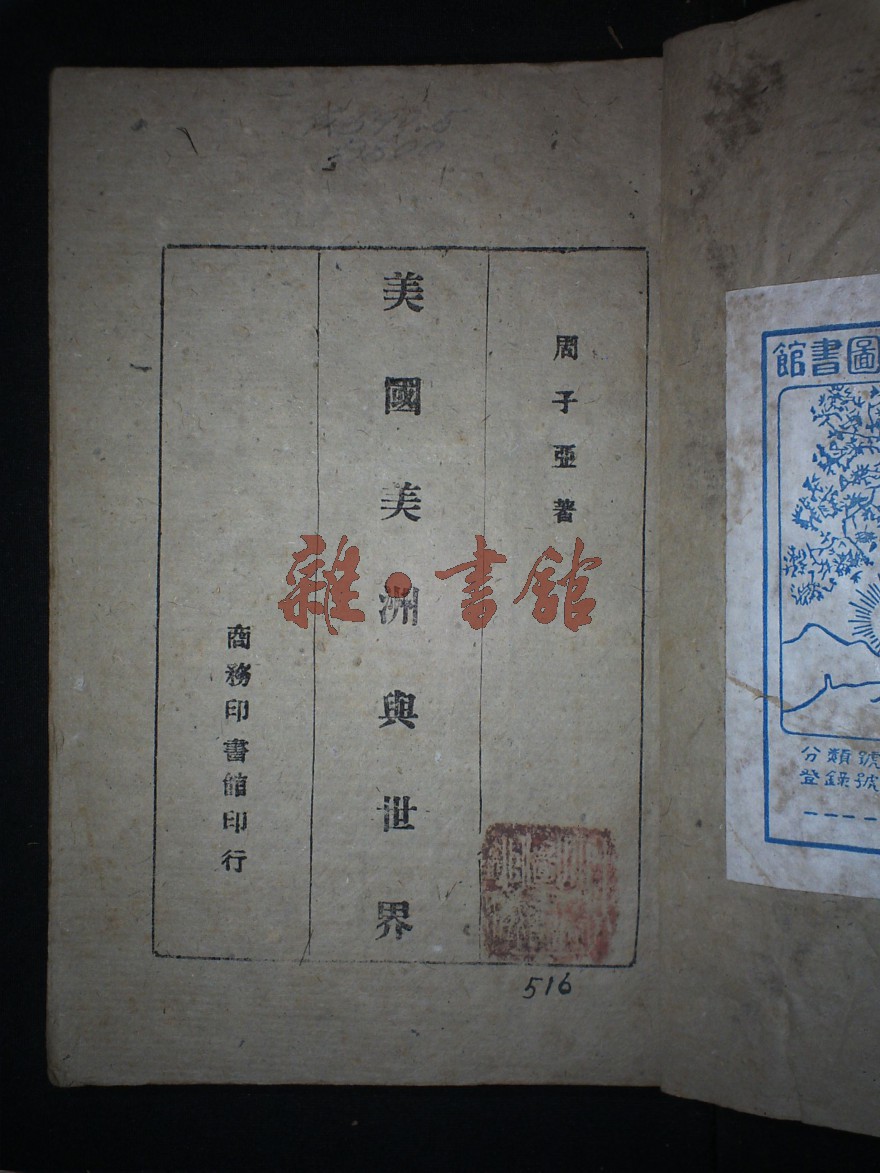 周子亞著
美國美洲與世界
商務印書館印行
516
雜·書館
館書圖
分類號
登錄號